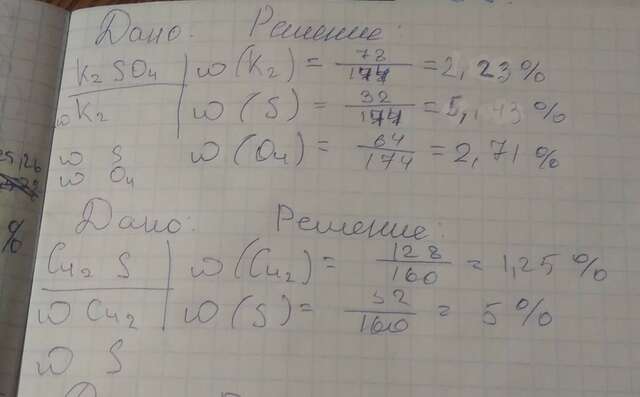 Дано: Решение:
K₂SO₄ ω(K₂) = 78/174 = 2,23%
ω K₂ ω(S) = 32/174 = 5,43%
ω S
ω O₄ ω(O₄) = 64/174 = 2,71%
%
Дано: Решение:
Cu₂ S ω(Cu₂) = 128/160 = 1,25%
ω Cu₂ ω(S) = 32/160 = 5%
ω S